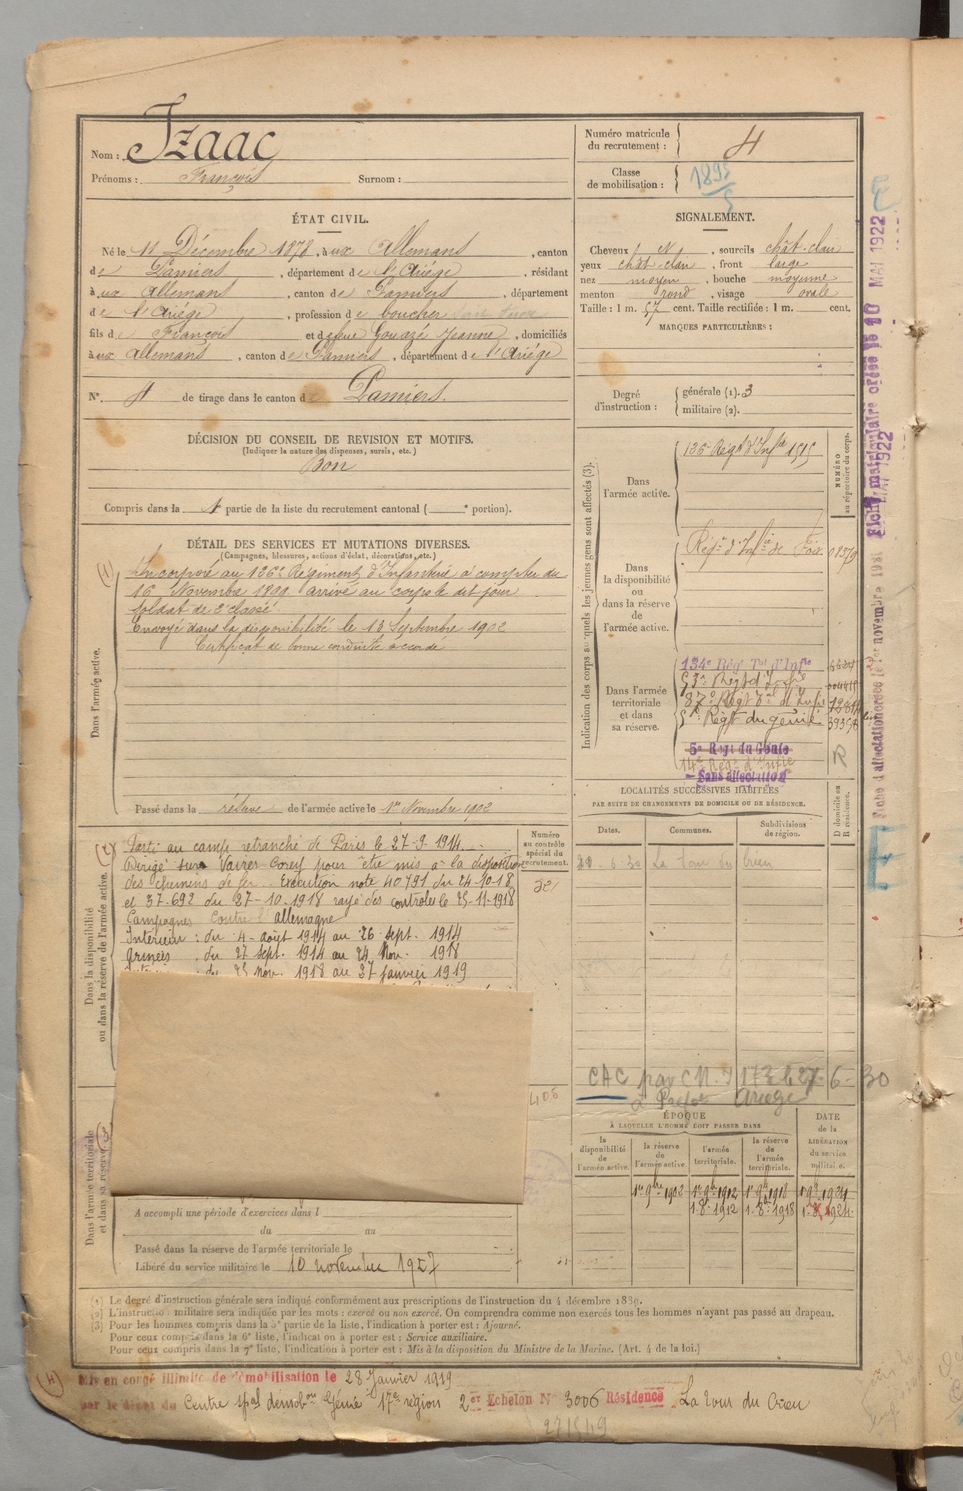 Nom : Izaac
Prénoms : François Surnom :
Numéro matricule du recrutement : 4
Classe de mobilisation : 1895
ÉTAT CIVIL.
Né le 11 Décembre 1878, à ux Allemans, canton
de Pamiers, département de l'Ariége, résidant
à ux Allemans, canton de Pamiers, département
de l'Ariége, profession de boucher
fils de François et de feue Gouazé Jeanne, domiciliés
à ux Allemans, canton de Pamiers, département de l'Ariége
N° 4 de tirage dans le canton de Pamiers.
SIGNALEMENT.
Cheveux N, sourcils chât-clair
yeux chât clair, front large
nez moyen, bouche moyenne
menton rond, visage ovale
Taille : 1 m. 57 cent. Taille rectifiée : 1 m. cent.
MARQUES PARTICULIÈRES :
Degré d'instruction : générale (1). 3
militaire (2).
DÉCISION DU CONSEIL DE REVISION ET MOTIFS.
(Indiquer la nature des dispenses, sursis, etc.)
Bon
Compris dans la 1 partie de la liste du recrutement cantonal ( e portion).
DÉTAIL DES SERVICES ET MUTATIONS DIVERSES.
(Campagnes, blessures, actions d'éclat, décorations, etc.)
Dans l'armée active.
(1) Incorporé au 126e Régiment d'Infanterie à compter du
16 Novembre 1899 arrivé au corps le dit jour
soldat de 2e classe.
Envoyé dans la disponibilité le 13 Septembre 1902
Certificat de bonne conduite accordé
Passé dans la réserve de l'armée active le 1er Novembre 1902
Dans la disponibilité ou dans la réserve de l'armée active.
Numéro au contrôle spécial du recrutement.
(2) Parti au camp retranché de Paris le 27-9-1914
Dirigé sur Vaires-Torcy pour être mis à la disposition
des chemins de fer. Exécution note 40791 du 24-10-18
et 37-692 du 27-10-1918 rayé des contrôles le 25-11-1918
Campagnes Contre l'allemagne
Intérieur : du 4 août 1914 au 26 sept. 1914
armées : du 27 sept. 1914 au 24 Nov. 1918
du 25 Nov. 1918 au 27 janvier 1919
Dans l'armée territoriale et dans sa réserve.
405
A accompli une période d'exercices dans l
du au
Passé dans la réserve de l'armée territoriale le
Libéré du service militaire le 10 novembre 1927
Indication des corps auxquels les jeunes gens sont affectés (3).
NUMÉRO au répertoire du corps.
Dans l'armée active.
126e Régt d'Infie 1515
Dans la disponibilité ou dans la réserve de l'armée active.
Régt d'Infie de Foix 01370
Dans l'armée territoriale et dans sa réserve.
134e Régt Tal d'Infie
87e Régt Tal d'Infie
Régt du génie
5e Régt du Génie
14e Régt d'Infie
Sans affectation
R
LOCALITÉS SUCCESSIVES HABITÉES
PAR SUITE DE CHANGEMENTS DE DOMICILE OU DE RÉSIDENCE.
D domicile ou R résidence.
Dates. Communes. Subdivisions de région.
6-30 La tour du Crieu
CAC par C.M. 6-30
à Préfet Ariège
ÉPOQUE
À LAQUELLE L'HOMME DOIT PASSER DANS
la disponibilité de l'armée active.
la réserve de l'armée active.
l'armée territoriale.
la réserve de l'armée territoriale.
DATE de la LIBÉRATION du service militaire.
1er 9bre 1902 1er 9bre 1912 1er 9bre 1918 1er 9bre 1924
1.8bre 1912 1.8bre 1918 1.8bre 1924
(1) Le degré d'instruction générale sera indiqué conformément aux prescriptions de l'instruction du 4 décembre 1889.
(2) L'instruction militaire sera indiquée par les mots : exercé ou non exercé. On comprendra comme non exercés tous les hommes n'ayant pas passé au drapeau.
(3) Pour les hommes compris dans la 5e partie de la liste, l'indication à porter est : Ajourné.
Pour ceux compris dans la 6e liste, l'indication à porter est : Service auxiliaire.
Pour ceux compris dans la 7e liste, l'indication à porter est : Mis à la disposition du Ministre de la Marine. (Art. 4 de la loi.)
Mis en congé illimité de démobilisation le 28 Janvier 1919
par le dépôt du Centre spal démobon Génie 17e région 2er Echelon N° 3006 Résidence La tour du Crieu
Fiche matriculaire créée le 10 MAI 1922
MAI 1922
Fiche d'affectation créée le 1er novembre
E
E